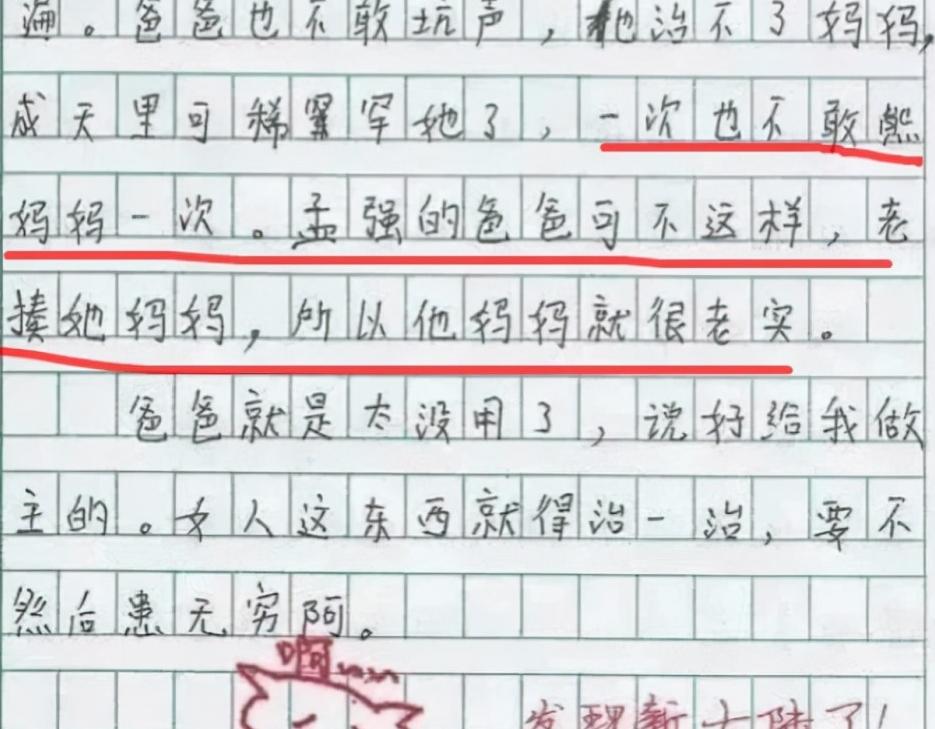 遍。爸爸也不敢坑声，他治不了妈妈，
成天里可稀罕她了，一次也不敢熊
妈妈一次。孟强的爸爸可不这样，老
揍她妈妈，所以他妈妈就很老实。
爸爸就是太没用了，说好给我做
主的。女人这东西就得治一治，要不
然后患无穷阿。
啊
发现新大陆了！